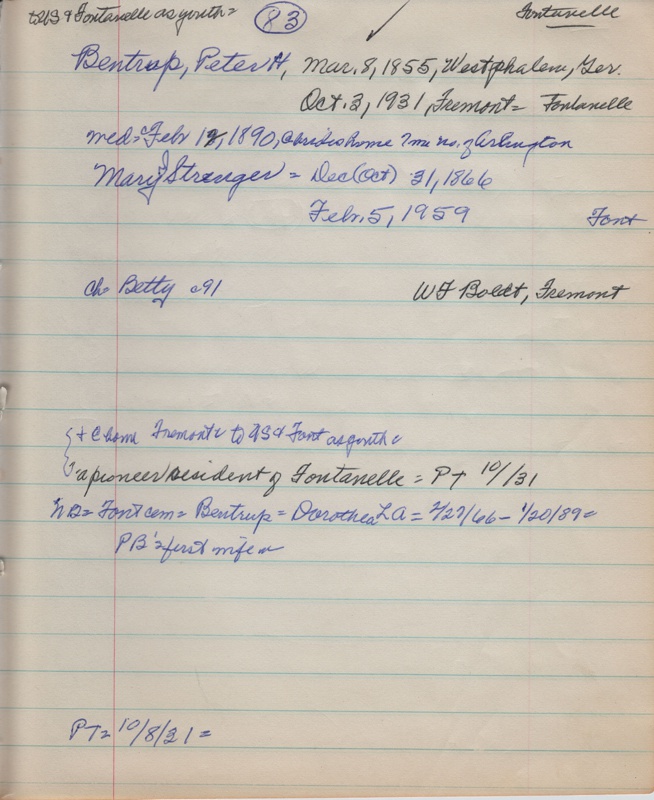 to US & Fontanelle as youth = (83) Fontanelle
Bentrup, Peter H, Mar. 8, 1855, Westphalen, Ger.
Oct. 3, 1931, Fremont = Fontanelle
med = Feb 12, 1890, @ brides home 7 mi no. of Arlington
Mary J Stranger = Dec (Oct) 31, 1866
Feb. 5, 1959 Font
ch = Betty c91 WF Boldt, Fremont
+ @ home Fremont = to US & Font as youth =
"a pioneer resident of Fontanelle = PT 10/31
NB = Font cem = Bentrup = Dorothea LA = 2/27/66 - 1/20/89 =
PB's first wife =
PT = 10/8/31 =